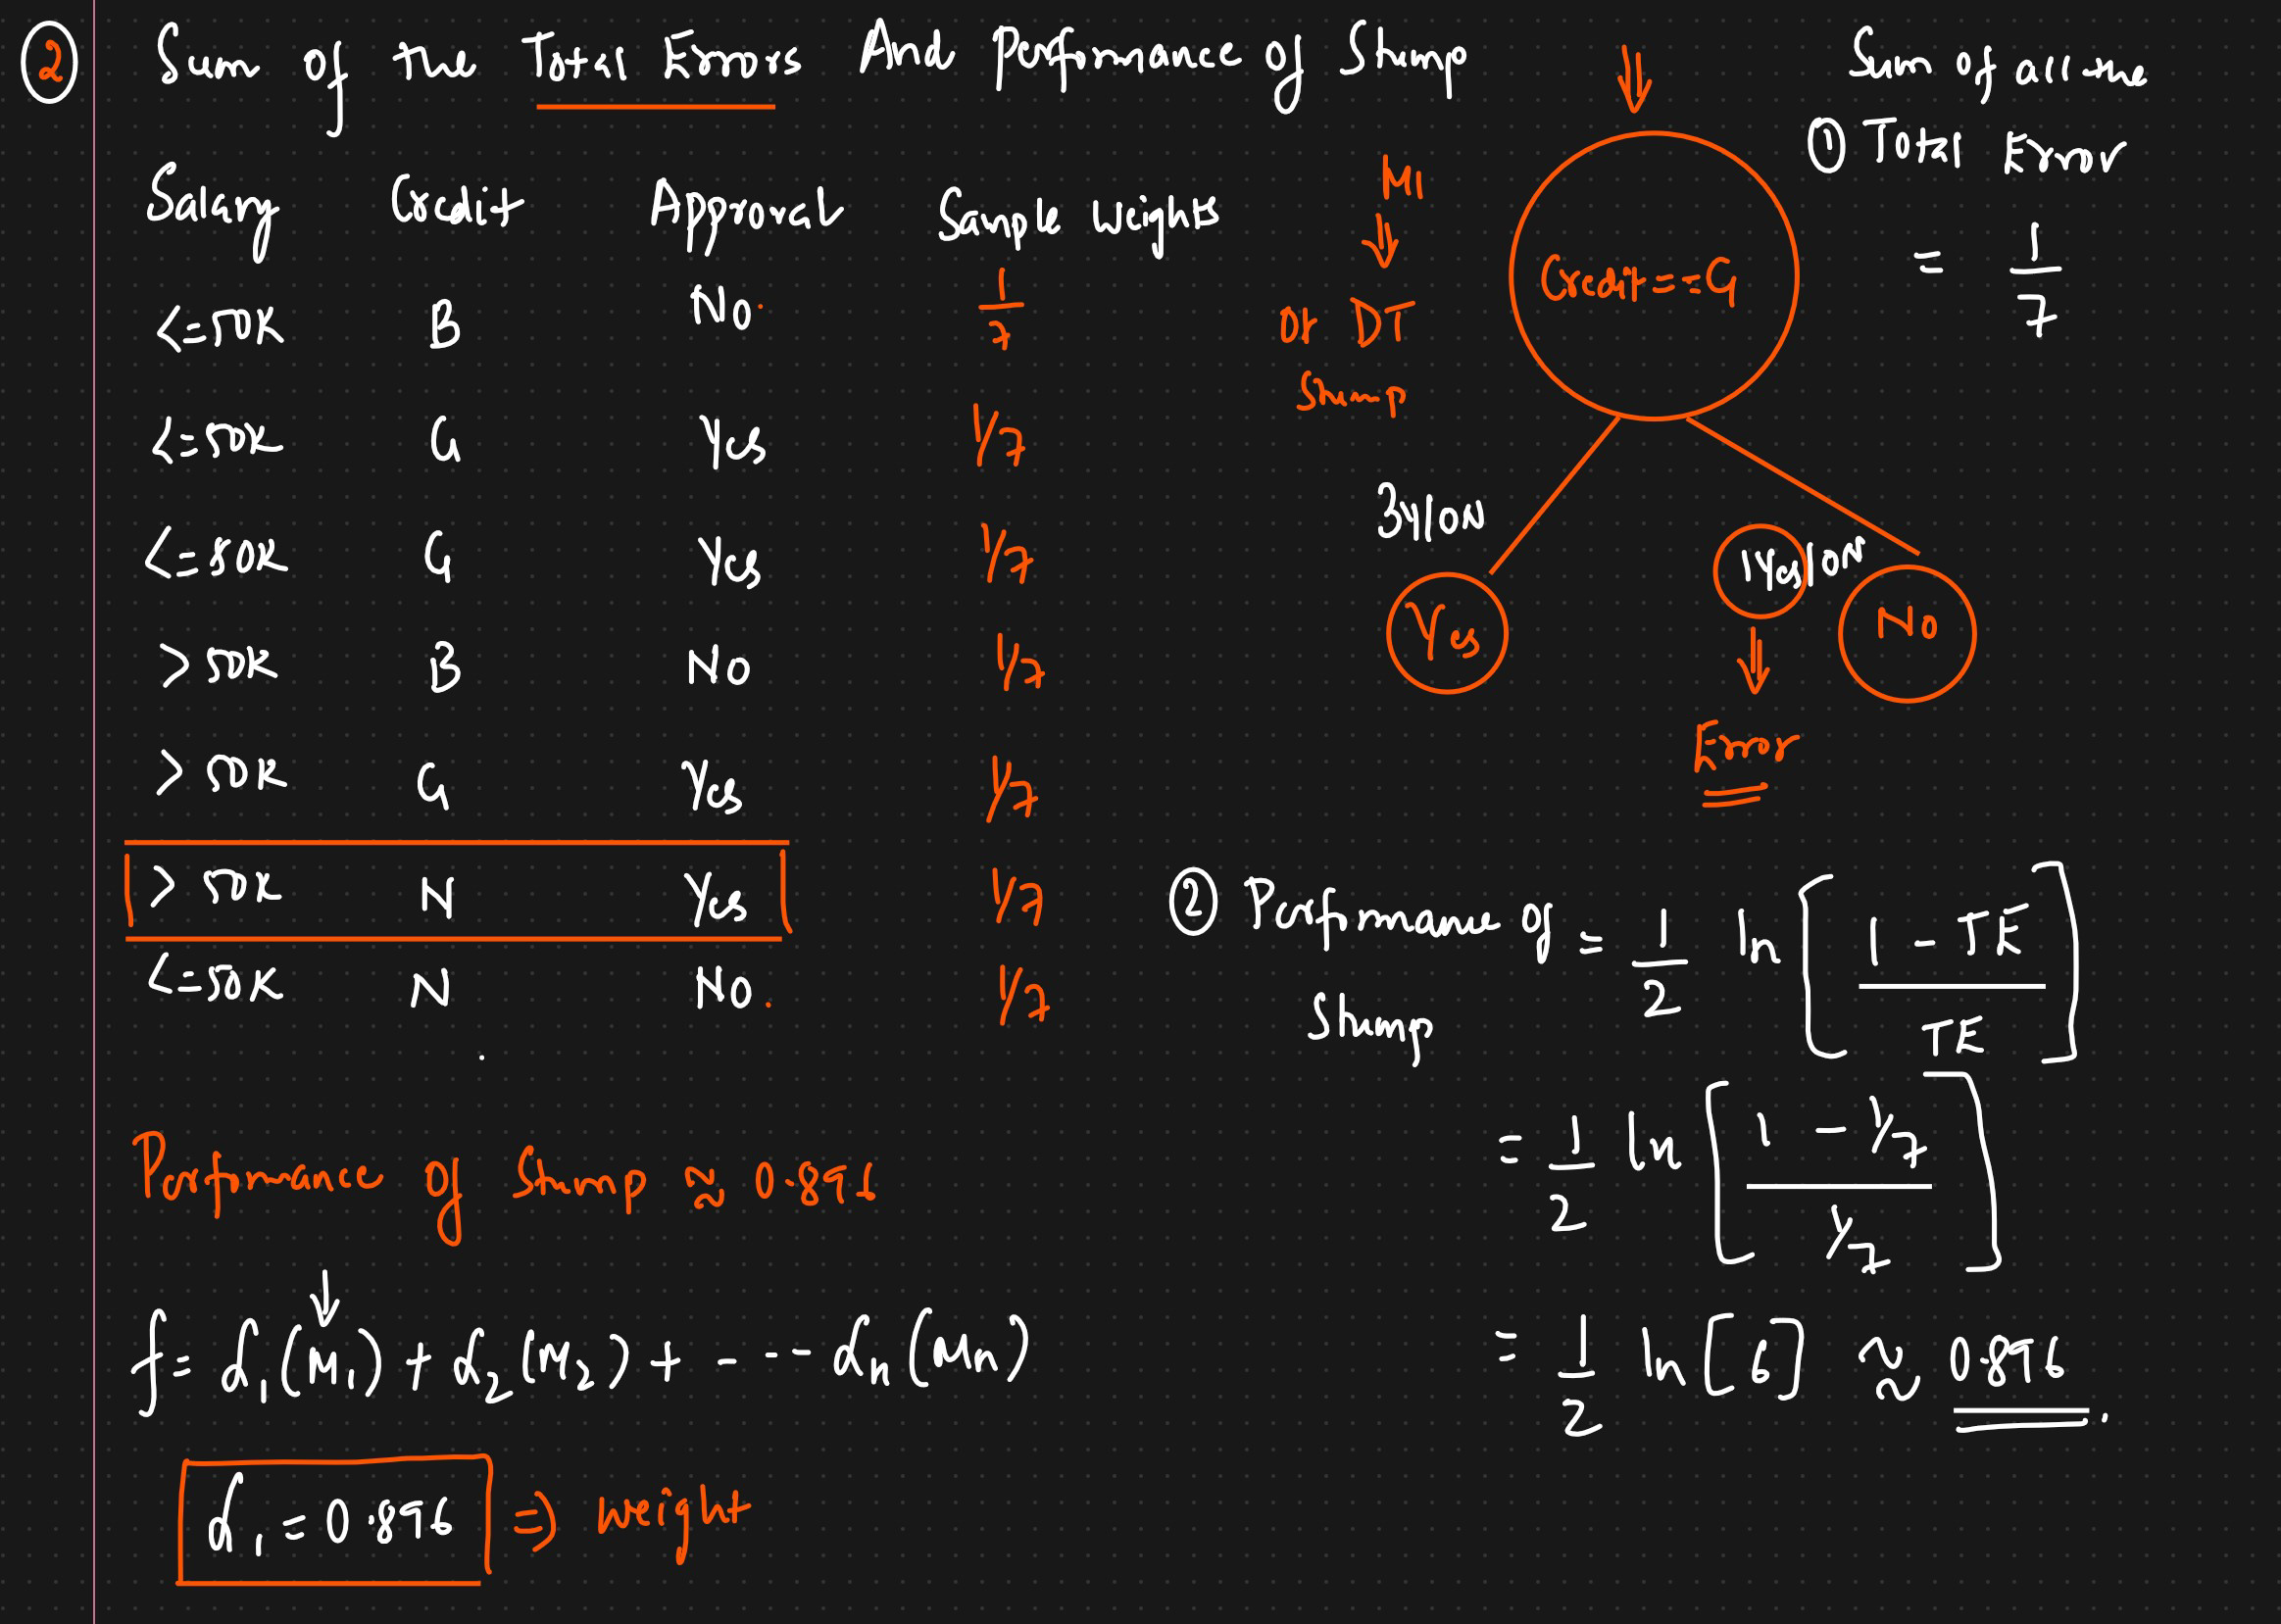 ② Sum of the Total Errors And Performance of Stump
Salary Credit Approval Sample Weights
<=50K B No 1/7
<=50K G Yes 1/7
<=50K G Yes 1/7
>50K B No 1/7
>50K G Yes 1/7
>50K N Yes 1/7
<=50K N No 1/7
M1
DT
Stump
Credit==G
3Y|0N
Yes
1Yes|0N
No
Error
Sum of all the
① Total Error
= 1/7
② Performance of Stump = 1/2 ln [(1 - TE)/TE]
= 1/2 ln [(1 - 1/7)/(1/7)]
= 1/2 ln [6] ≈ 0.896.
Performance of Stump ≈ 0.896
f = α₁(M₁) + α₂(M₂) + ---- αn(Mn)
α₁ = 0.896 ⇒ weight